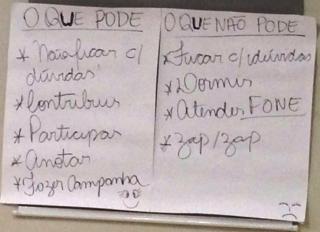 O QUE PODE
* Não ficar c/
dúvidas
* Contribuir
* Participar
* Anotar
* Fazer Campanha
O QUE NÃO PODE
* Ficar c/ dúvidas
* Dormir
* Atender FONE
* zap/zap